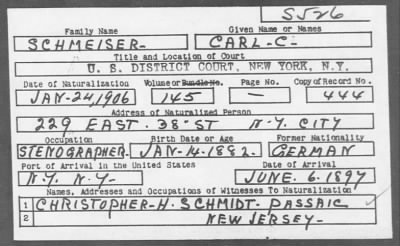 S526
Family Name Given Name or Names
SCHMEISER- CARL-C-
Title and Location of Court
U. S. DISTRICT COURT, NEW YORK, N.Y.
Date of Naturalization Volume or Bundle No. Page No. Copy of Record No.
JAN-24,1906 145 — 444
Address of Naturalized Person
229 EAST. 38" ST N.Y. CITY
Occupation Birth Date or Age Former Nationality
STENOGRAPHER. JAN-14-1882. GERMAN
Port of Arrival in the United States Date of Arrival
N.Y. N.Y- JUNE. 6.1897
Names, Addresses and Occupations of Witnesses To Naturalization
1 CHRISTOPHER-H. SCHMIDT- PASSAIC
2 NEW JERSEY-